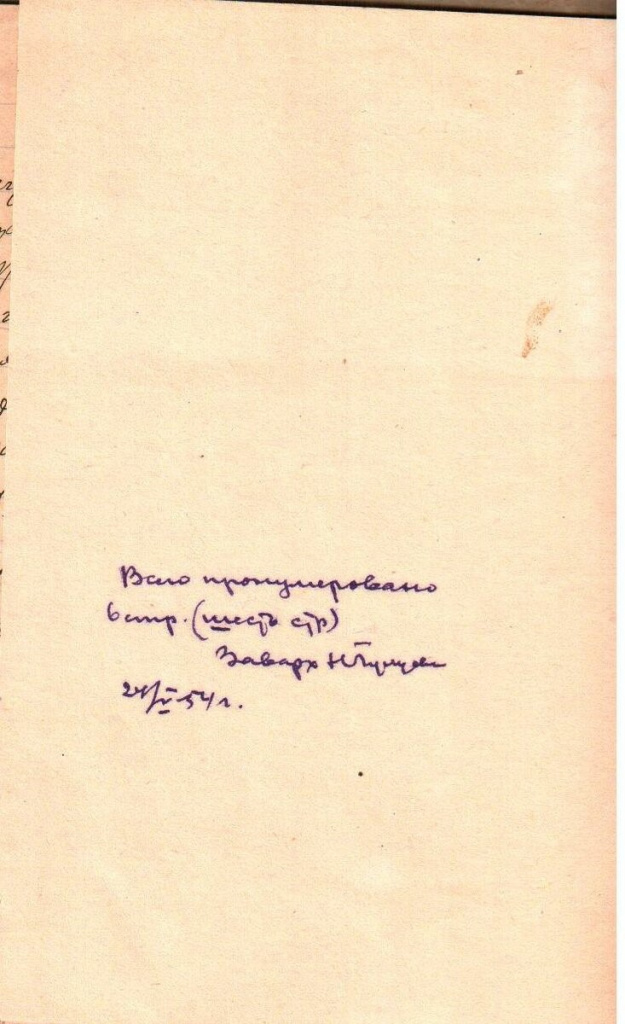 Всего пронумеровано
6 стр. (шесть стр)
Заварх
24/V-54 г.